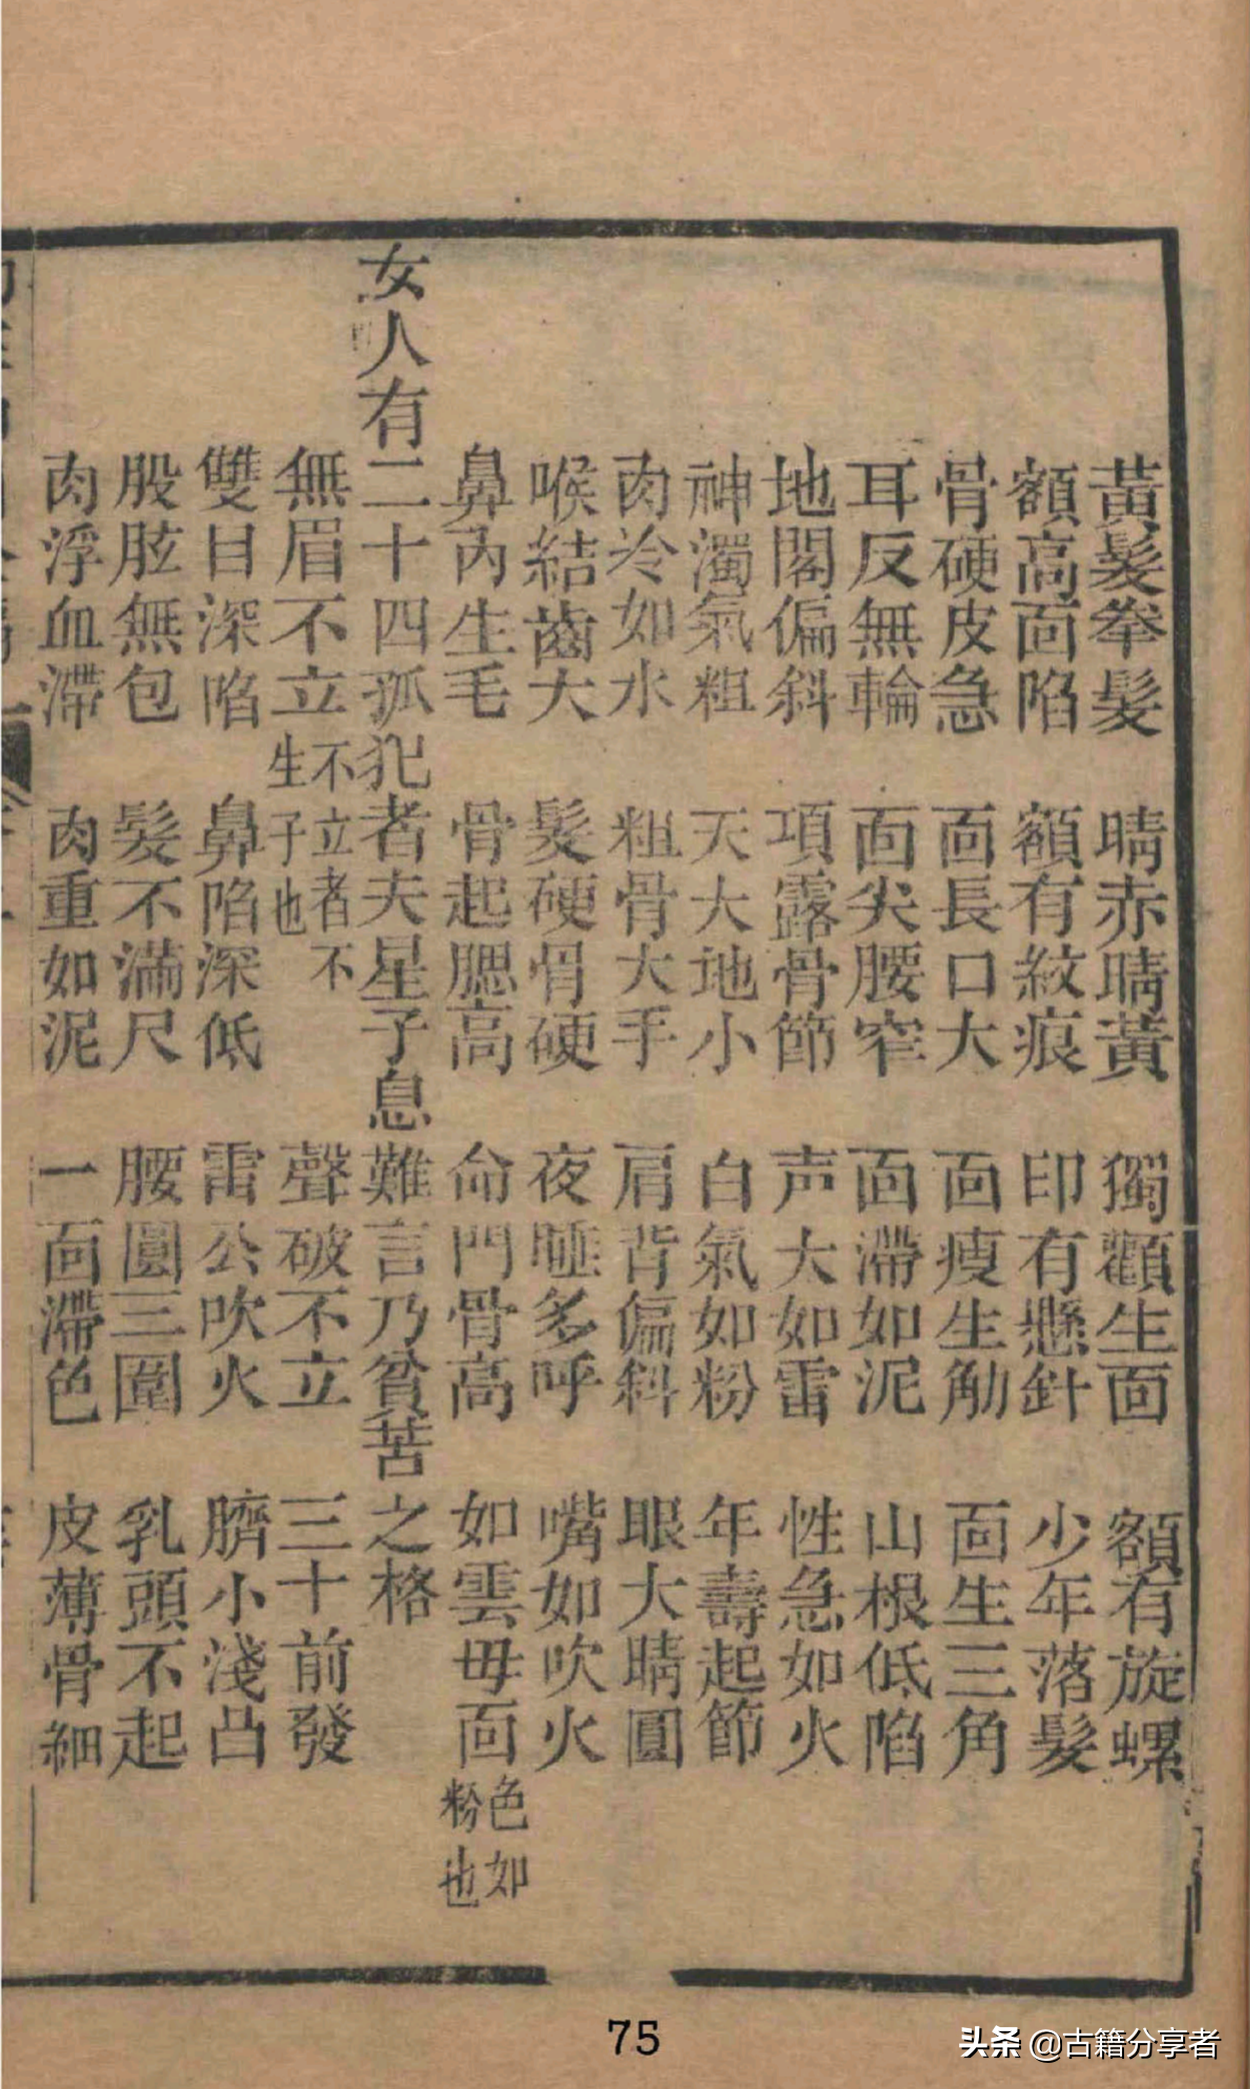 黃髮拳髮 睛赤睛黃 獨顴生面 額有旋螺
額高面陷 額有紋痕 印有懸針 少年落髮
骨硬皮急 面長口大 面瘦生觔 面生三角
耳反無輪 面尖腰窄 面滯如泥 山根低陷
地閣偏斜 項露骨節 声大如雷 性急如火
神濁氣粗 天大地小 白氣如粉 年壽起節
肉冷如水 粗骨大手 肩背偏斜 眼大睛圓
喉結齒大 髮硬骨硬 夜睡多呼 嘴如吹火
鼻內生毛 骨起腮高 命門骨高 如雲母面 色如粉也
女人有二十四孤犯者夫星子息難言乃貧苦之格
無眉不立 不立者不生子也 聲破不立 三十前發
雙目深陷 鼻陷深低 雷公吹火 臍小淺凸
股肱無包 髮不滿尺 腰圓三圍 乳頭不起
肉浮血滯 肉重如泥 一面滯色 皮薄骨細
75
头条 @古籍分享者